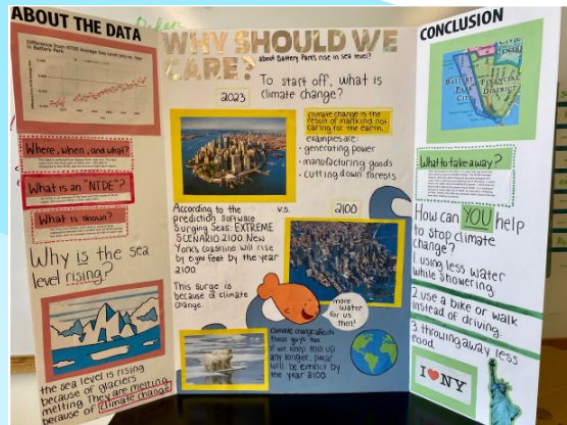 ABOUT THE DATA
Difference from NTDE Average Sea Level (m) vs. Year
in Battery Park
Where, when, and what?
What is an "NTDE"?
What is shown?
Why is the sea
level rising?
the sea level is rising
because of glaciers
melting. They are melting
because of climate change
WHY SHOULD WE
CARE?
about Battery Park's rise in sea level?
To start off, what is
climate change?
2023
climate change is the
result of mankind not
caring for the earth.
examples are:
• generating power
• manufacturing goods
• cutting down forests
According to the
prediction software
Surging Seas: EXTREME
SCENARIO 2100, New
York's coastline will rise
by eight feet by the year
2100
This surge is
because of climate
change.
v.s.
2100
more
water
for us
then!
Climate change affects
these guys too
if we keep this up
any longer, polar
will be extinct by
the year 2100
CONCLUSION
BATTERY
PARK
CITY
FINANCIAL
DISTRICT
What to take away?
How can YOU help
to stop climate
change?
1. using less water
while showering.
2 use a bike or walk
instead of driving.
3 throwing away less
food.
I NY